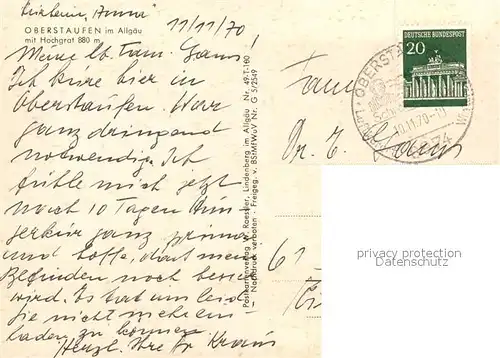 11/11/70
OBERSTAUFEN im Allgäu
mit Hochgrat 880 m
Meine lb. Fam. Gans!
Ich kure hier in
Oberstaufen. War
ganz dringend
notwendig. Ich
fühle mich jetzt
nach 10 Tagen
ganz prima
und hoffe, daß mein
Befinden noch besser
wird. Es hat uns leid
Sie nicht mehr ein-
laden zu können
Herzl. Ihre Fr Kraus
Postkartenverlag W. Roessler, Lindenberg im Allgäu Nr. 49-T-160
Nachdruck verboten · Freigeg. v. BStMfWuV Nr. G 5/2549
DEUTSCHE BUNDESPOST
20
OBERSTA
10.11.70
8974
Fam
Dr. E. Gans
privacy protection
Datenschutz